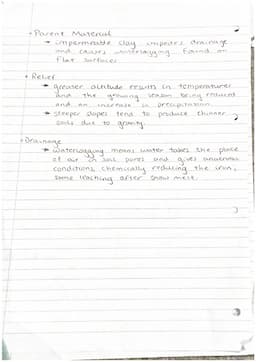 • Parent Material
→ impermeable clay impedes drainage
and causes waterlogging. Found on
flat surfaces
• Relief
→ greater altitude results in temperatures
and the growing season being reduced
and an increase in precipitation
→ steeper slopes tend to produce thinner
soils due to gravity.
• Drainage
→ waterlogging means water takes the place
of air in soil pores and gives anaerobic
conditions, chemically reducing the iron,
some leaching after snow melt.